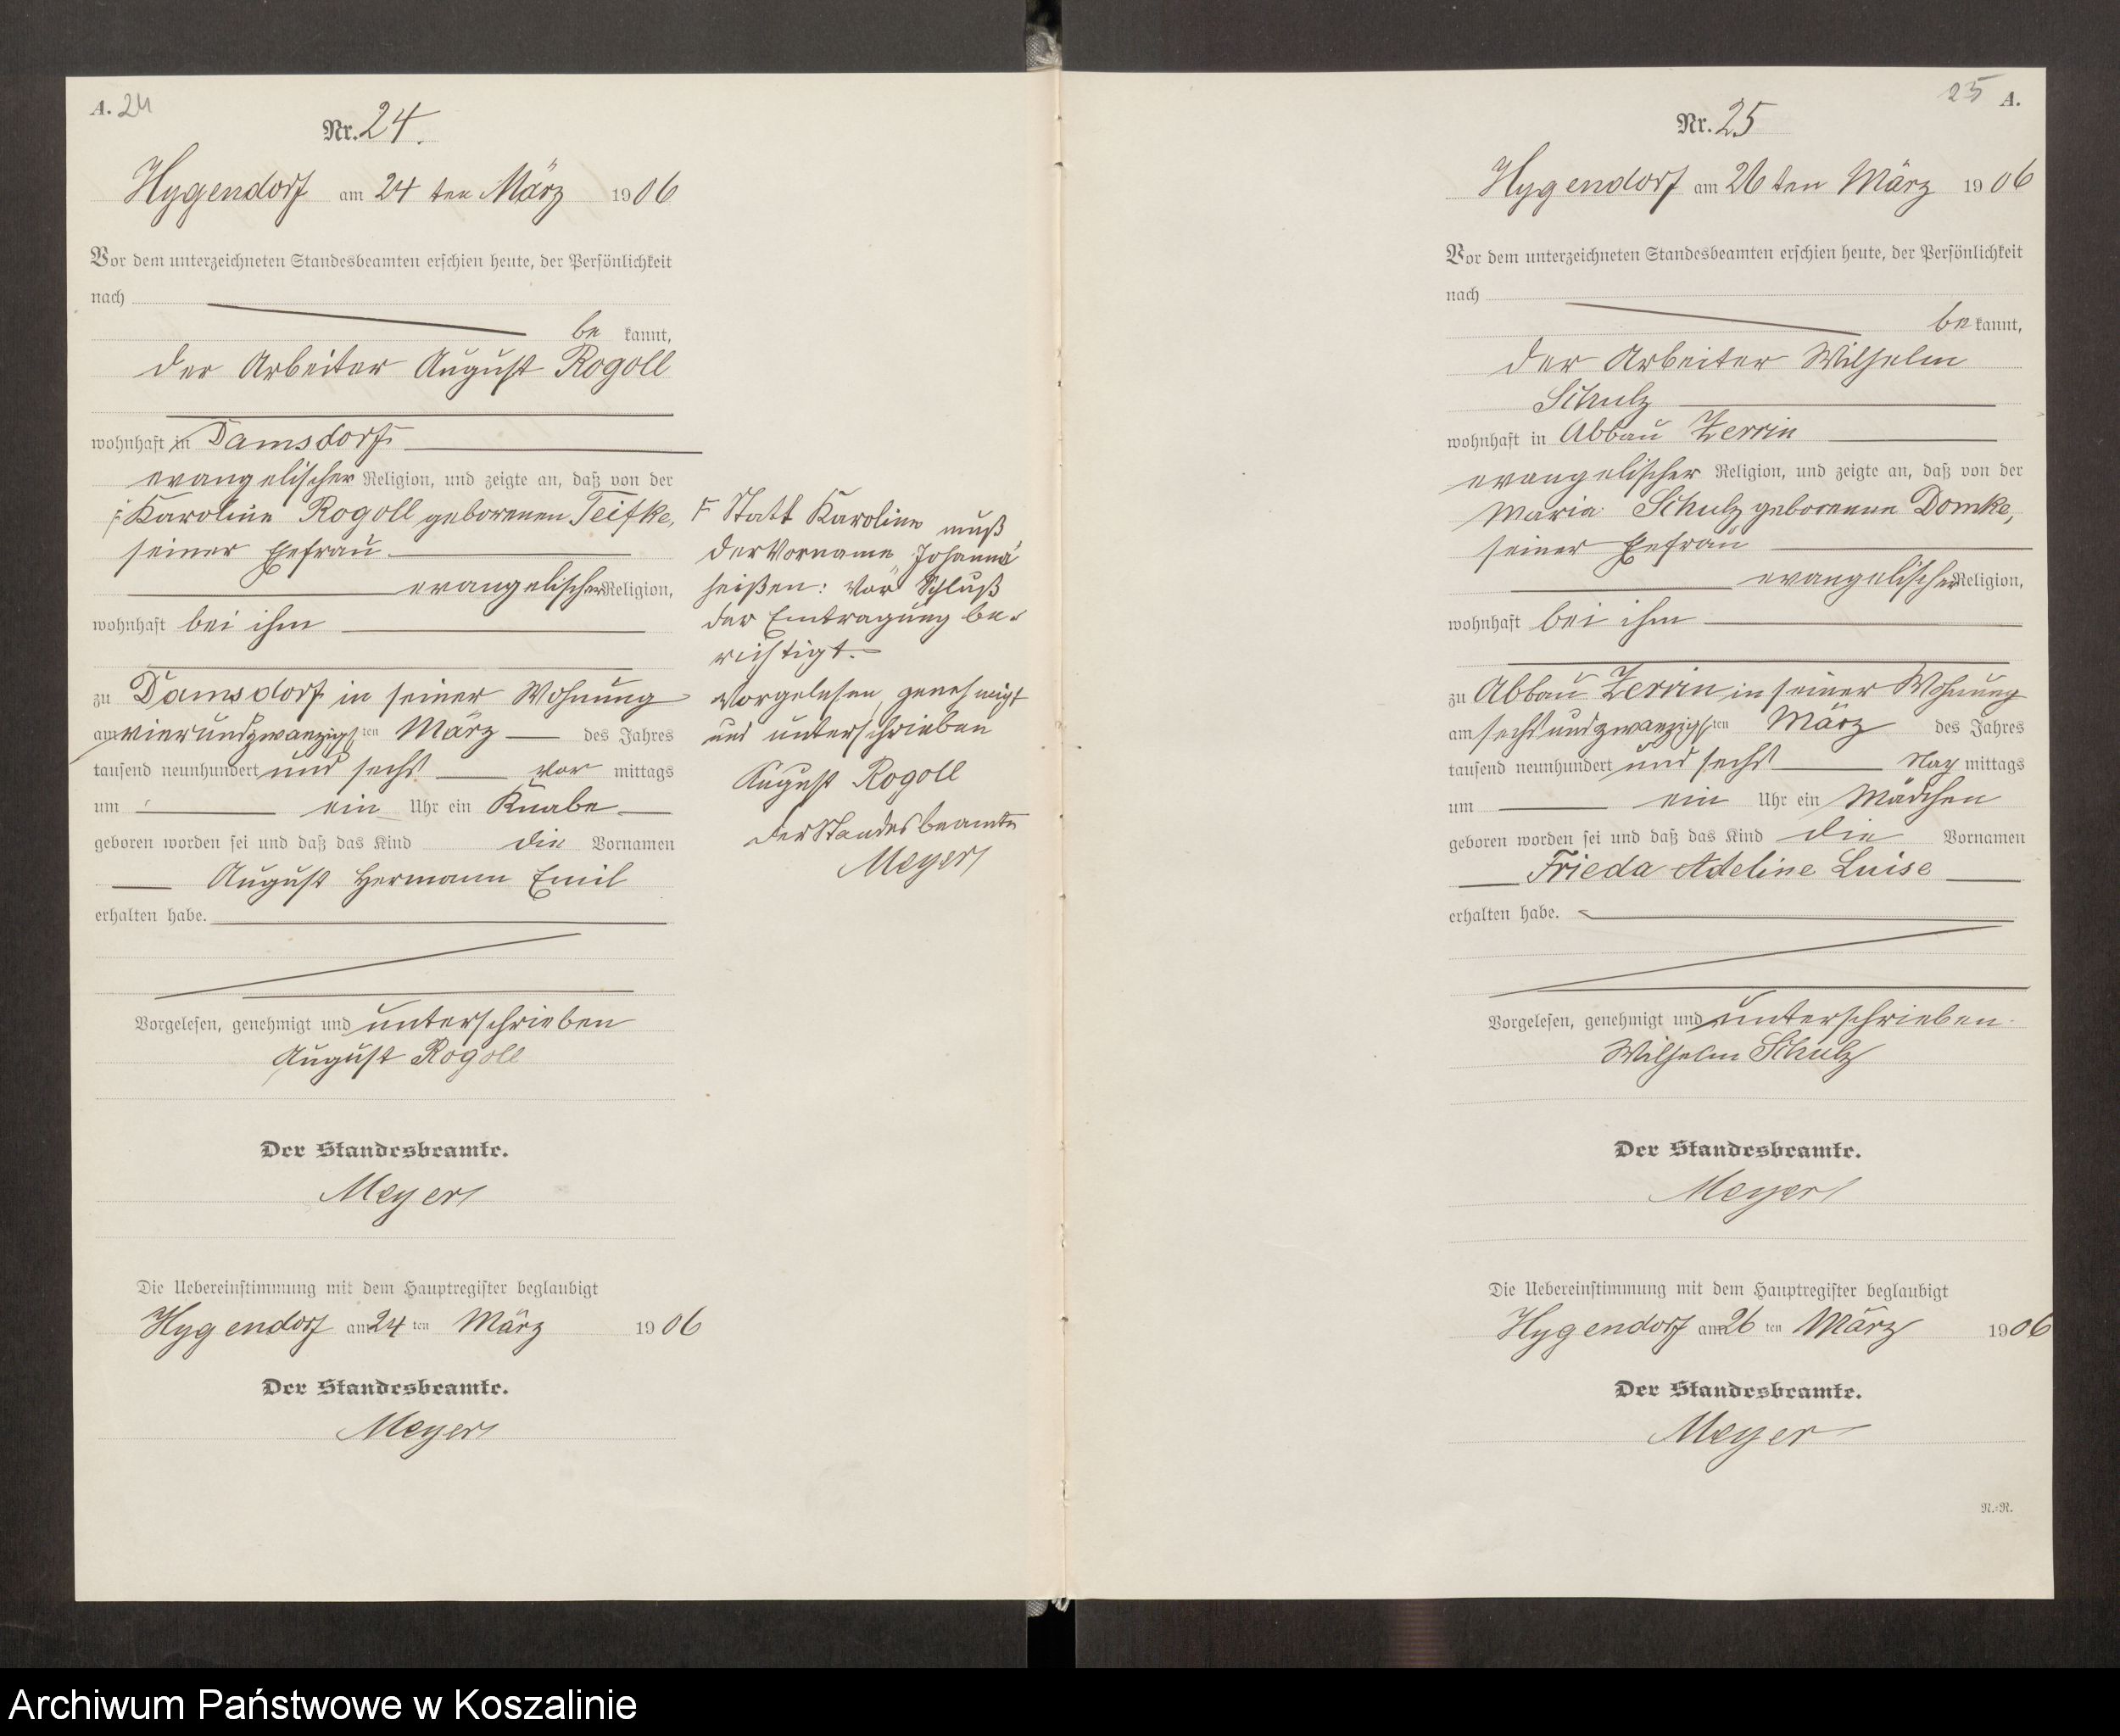 A. 24
Nr. 24.
Hygendorf am 24 ten März 1906
Vor dem unterzeichneten Standesbeamten erschien heute, der Persönlichkeit
nach
be kannt,
der Arbeiter August Rogoll
wohnhaft in Damsdorf
evangelischer Religion, und zeigte an, daß von der
Karoline Rogoll geborenen Teifke,
seiner Ehefrau
evangelischer Religion,
wohnhaft bei ihm
zu Damsdorf in seiner Wohnung
am vierundzwanzigsten März des Jahres
tausend neunhundert und sechs Vor mittags
um ein Uhr ein Knabe
geboren worden sei und daß das Kind die Vornamen
August Hermann Emil
erhalten habe.
Vorgelesen, genehmigt und unterschrieben
August Rogoll
Der Standesbeamte.
Meyer
Die Uebereinstimmung mit dem Hauptregister beglaubigt
Hygendorf am 24 ten März 1906
Der Standesbeamte.
Meyer
Statt Karoline muß
der Vorname Johanna
heißen: Vor Schluß
der Eintragung be-
richtigt.
Vorgelesen, genehmigt
und unterschrieben
August Rogoll
Der Standesbeamte
Meyer
25 A.
Nr. 25
Hygendorf am 26 ten März 1906
Vor dem unterzeichneten Standesbeamten erschien heute, der Persönlichkeit
nach
be kannt,
der Arbeiter Wilhelm
Schulz
wohnhaft in Abbau Zerrin
evangelischer Religion, und zeigte an, daß von der
Maria Schulz geborenen Domke,
seiner Ehefrau
evangelischer Religion,
wohnhaft bei ihm
zu Abbau Zerrin in seiner Wohnung
am sechsundzwanzigsten März des Jahres
tausend neunhundert und sechs Nach mittags
um ein Uhr ein Mädchen
geboren worden sei und daß das Kind die Vornamen
Frieda Adeline Luise
erhalten habe.
Vorgelesen, genehmigt und unterschrieben.
Wilhelm Schulz
Der Standesbeamte.
Meyer
Die Uebereinstimmung mit dem Hauptregister beglaubigt
Hygendorf am 26 ten März 1906
Der Standesbeamte.
Meyer
N.-R.
Archiwum Państwowe w Koszalinie